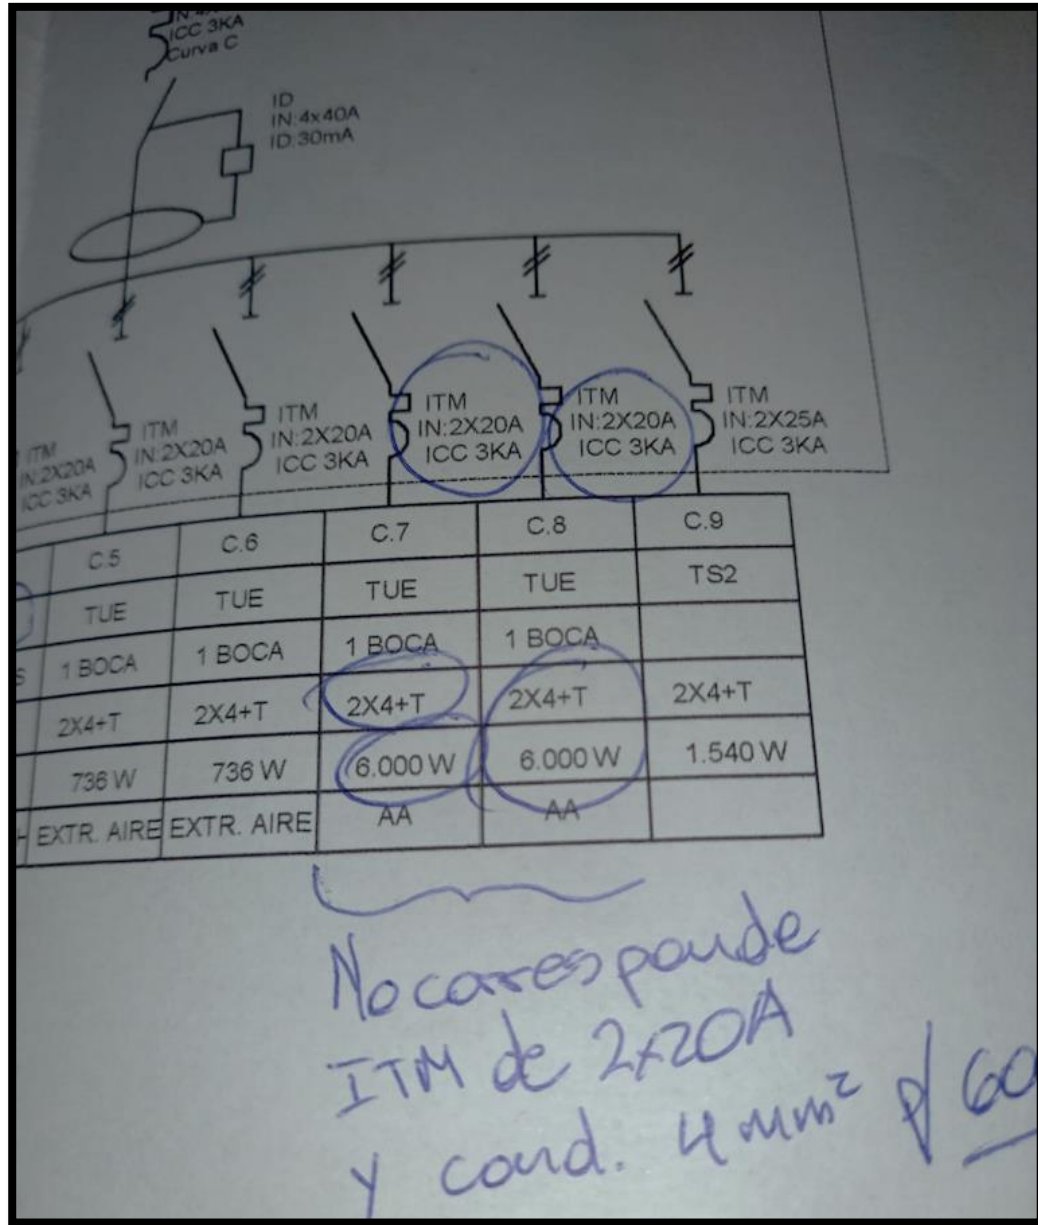 ICC 3KA
Curva C
ID
IN:4x40A
ID:30mA
ITM
IN:2X20A
ICC 3KA
ITM
IN:2X20A
ICC 3KA
ITM
IN:2X20A
ICC 3KA
ITM
IN:2X20A
ICC 3KA
ITM
IN:2X20A
ICC 3KA
ITM
IN:2X25A
ICC 3KA
C.5 C.6 C.7 C.8 C.9
TUE TUE TUE TUE TS2
S 1 BOCA 1 BOCA 1 BOCA 1 BOCA
2X4+T 2X4+T 2X4+T 2X4+T 2X4+T
736 W 736 W 6.000 W 6.000 W 1.540 W
EXTR. AIRE EXTR. AIRE AA AA
No corresponde
ITM de 2x20A
y cond. 4 mm² p/ 60